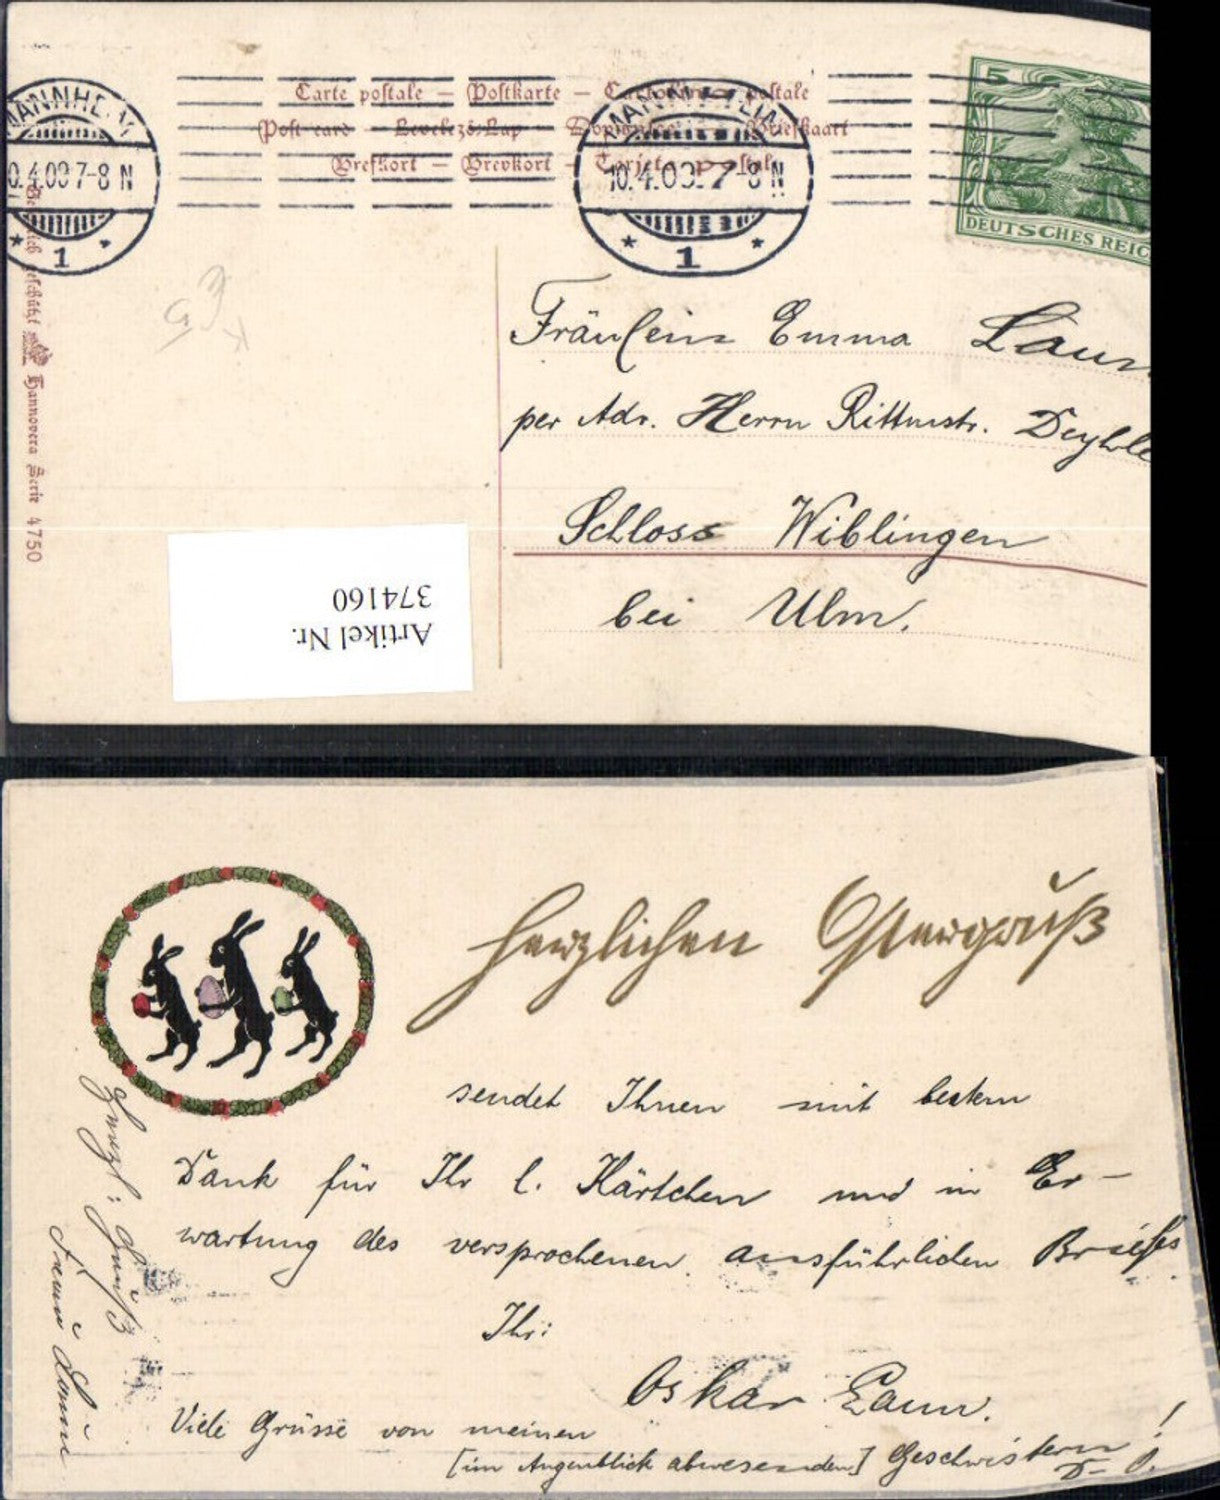 Carte postale — Postkarte — postale
Post card — Levelező-Lap — Briefkaart
Brefkort — Brevkort — Tarjeta postal
MANNHEIM
10.4.09 7-8 N
* 1 *
MANNHEIM
10.4.09 7-8 N
* 1 *
5
DEUTSCHES REIC
geschützt Hannovera Serie 4750
Fräulein Emma Laun
per Adr. Herrn Rittmstr. Deyhle
Schloss Wiblingen
bei Ulm.
Artikel Nr.
374160
Herzlichen Ostergruß
sendet Ihnen mit bestem
Dank für Ihr l. Kärtchen und in Er-
wartung des versprochenen ausführlichen Briefes
Ihr:
Oskar Laun.
Viele Grüsse von meinen
[im Augenblick abwesenden] Geschwistern!
D. O.
Herzl: Gruß